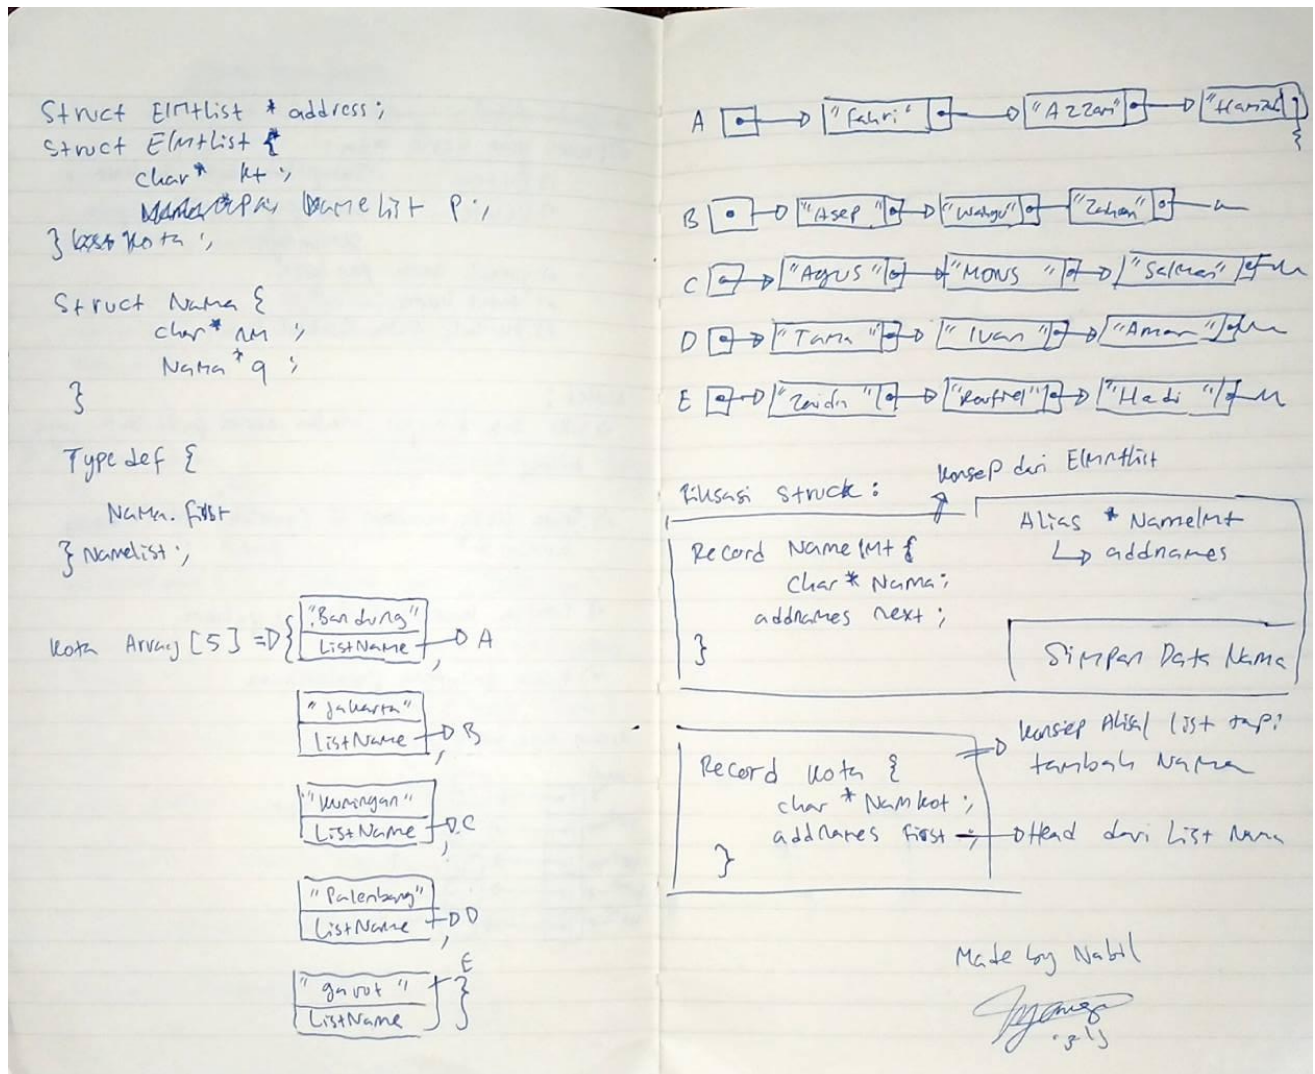 Struct ElmtList * address;
Struct ElmtList {
char* kt;
Namelist P;
} Kota;
Struct Nama {
char* nm;
Nama* q;
}
Typedef {
Nama. first
} Namelist;
Kota Array [5] => {
"Bandung"
ListName , A
"Jakarta"
ListName , B
"Kuningan"
ListName , C
"Palembang"
ListName , D
"garut" E
ListName }
A "Fahri" "Azzam"
B "Asep" "Wahyu"
C "Agus" "MONS" "Salman"
D "Tama" "Ivan" "Aman"
E "Zaidn" "Hadi"
Konsep dari Elmntlist
Struck :
Record Namelmt {
char* Nama;
addnames next;
}
Alias * Namelmt
addnames
Simpan Data Nama
Record Kota {
char * Namkot;
addnames first;
}
Konsep list tapi
tambah Nama
Head dari List Nama
Made by Nabil